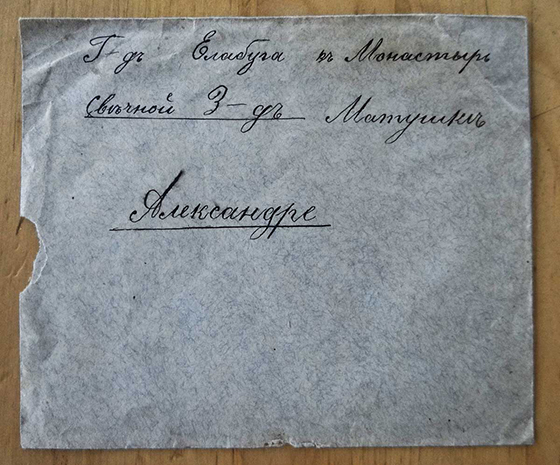 Г-дъ Елабуга въ Монастырь
Свѣчной З-дъ Матушкѣ
Александре